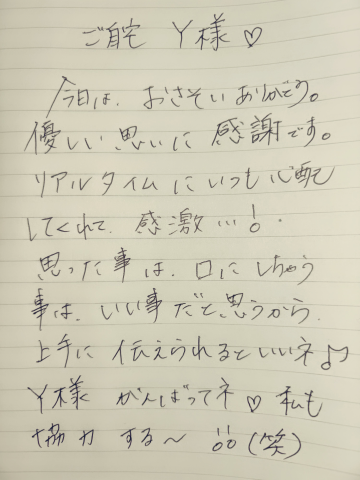 ご自宅 Y様♡
今日は、おさそいありがとう。
優しい思いに感謝です。
リアルタイムにいつも心配
してくれて、感激…!
思った事は、口にしちゃう
事は、いい事だと思うから
上手に伝えられるといいネ♪
Y様 がんばってネ♡ 私も
協力する〜 (笑)